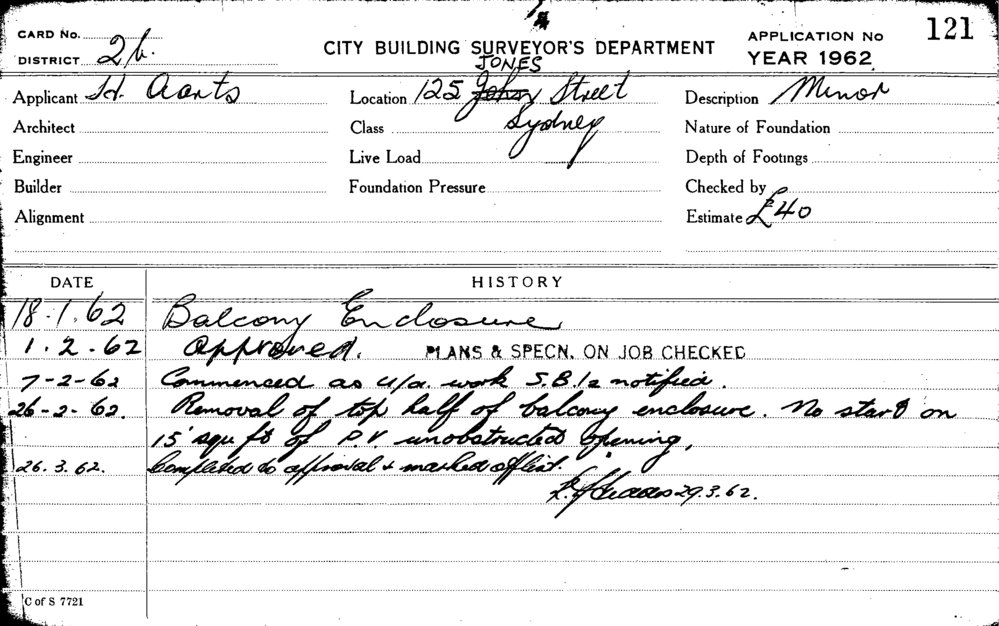 CARD No.
DISTRICT 2b.
CITY BUILDING SURVEYOR'S DEPARTMENT
APPLICATION No 121
YEAR 1962
Applicant H. Aarts
Location 125 John JONES Street
Sydney
Description Minor
Architect
Class
Nature of Foundation
Engineer
Live Load
Depth of Footings
Builder
Foundation Pressure
Checked by
Alignment
Estimate £40
DATE HISTORY
18.1.62 Balcony Enclosure
1.2.62 Approved. PLANS & SPECN. ON JOB CHECKED
7-2-62 Commenced as u/a. work S.B./2 notified.
26-2-62. Removal of top half of balcony enclosure. No start on
15 squ ft of P.V. unobstructed opening.
26.3.62. Completed to approval & marked off list.
29.3.62.
C of S 7721